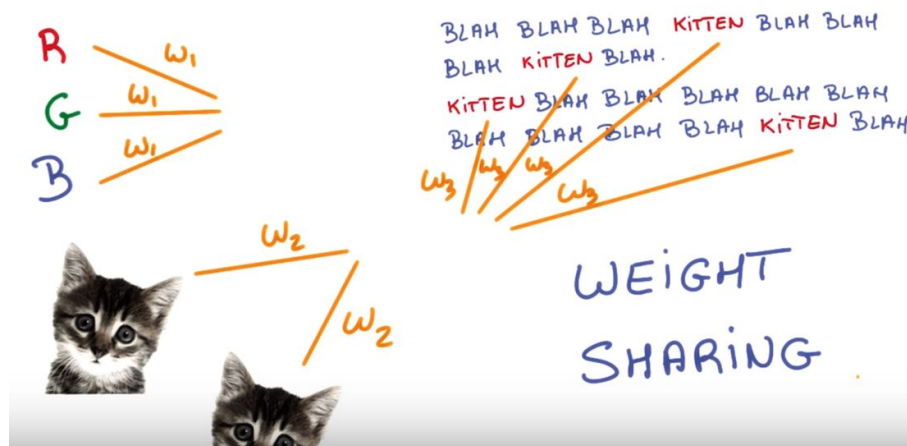 R
W1
G
W1
B
W1
BLAH BLAH BLAH KITTEN BLAH BLAH
BLAH KITTEN BLAH.
KITTEN BLAH BLAH BLAH BLAH BLAH
BLAH BLAH BLAH BLAH KITTEN BLAH
W3 W3 W3 W3
W2
W2
WEIGHT
SHARING